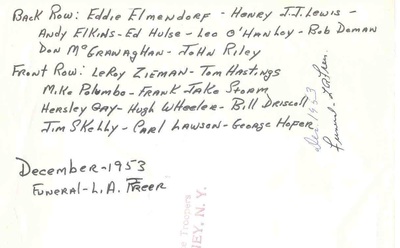 Back Row: Eddie Elmendorf - Henry J.J. Lewis -
Andy Elkins - Ed Hulse - Leo O'Hanloy - Bob Doman
Don McGranaghan - John Riley
Front Row: LeRoy Zieman - Tom Hastings
Mike Palumbo - Frank Jake Storm
Hersley Gay - Hugh Wheeler - Bill Driscoll
Jim Skelly - Carl Lawson - George Hofer
December - 1953
Funeral - L.A. Freer
Dec 1953
Funeral
e Troopers
NEY, N.Y.